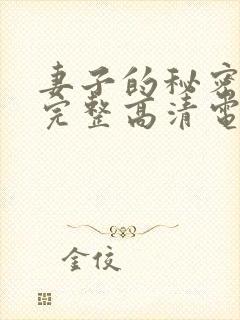 妻子的秘密
完整高清電
金佼